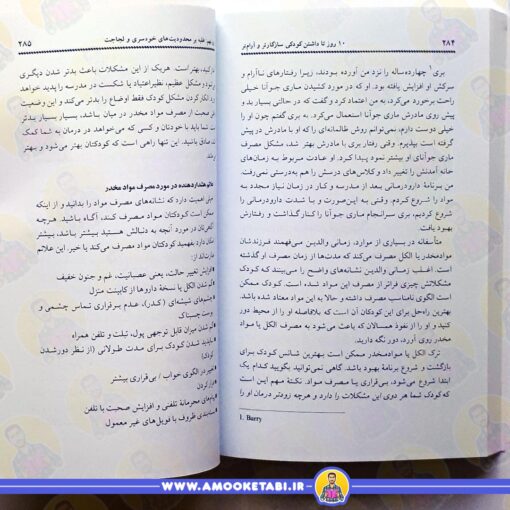 ۲۸۴
۱۰ روز تا داشتن کودکی سازگارتر و آرام‌تر
بری۱ چهارده‌ساله را نزد من آورده بودند، زیرا رفتارهای ناآرام و
سرکش او افزایش یافته بود. او که در مورد کشیدن ماری جوآنا خیلی
راحت برخورد می‌کرد، به من اعتماد کرد و گفت که در حالتی بسیار بد و
پیش روی مادرش ماری جوآنا استعمال می‌کرد. به بری گفتم چون او را
خیلی دوست دارم، نمی‌توانم روش ظالمانه‌ای را که او با مادرش در پیش
گرفته است بپذیرم. وقتی رفتار بری با مادرش بهتر شد، مشکل مصرف
ماری جوآنای او بیشتر نمود پیدا کرد. او عادت مربوط به زمان‌های
خانه آمدنش را تغییر داد و کلاس‌های درسش را هم به‌درستی نمی‌رفت.
من برنامهٔ دارودرمانی بعد از مدرسه و کار در زمان نیاز مجدد به
مواد را شروع کردم. وقتی به‌این‌صورت و با شدت دارودرمانی را
شروع کردیم، بری سرانجام ماری جوآنا را کنار گذاشت و رفتارش
بهبود یافت.
متأسفانه در بسیاری از موارد، زمانی والدین می‌فهمند فرزندشان
موادمخدر یا الکل مصرف می‌کند که مدت‌ها از زمان مصرف او گذشته
است. اغلب زمانی والدین نشانه‌های واضح را می‌بینند که کودک
مشکلاتش چیزی فراتر از مصرف این مواد شده است. کودک ممکن
است الگوی نامناسب مصرف داشته و حالا به این مواد معتاد شده باشد.
بهترین راه‌حل برای این کودکان آن است که بلافاصله او را از محیط دور
کنید و او را از نفوذ همسالان که باعث می‌شود به مصرف الکل یا مواد
مخدر روی آورد، دور نگه دارید.
ترک الکل یا موادمخدر ممکن است بهترین شانس کودک برای
بازگشت و شروع برنامهٔ بهبود باشد. گاهی نمی‌توانید بگویید کدام یک
ابتدا شروع می‌شود، بی‌قراری یا مصرف مواد. نکتهٔ مهم این است
که کودک شما هر دوی این مشکلات را دارد و هرچه زودتر درمان او را
1. Barry
غلبه بر محدودیت‌های خودسری و لجاجت
۲۸۵
کنید، بهتر است. هریک از این مشکلات باعث بدتر شدن دیگری
و مشکل عظیم، نظیر اعتیاد یا شکست در مدرسه را پدید خواهد
انکار کردن مشکل کودک فقط اوضاع را بدتر می‌کند و این وضعیت
صحبت از مصرف مواد مخدر در میان باشد، بسیار بسیار بدتر
شما باید با خودتان و کسی که می‌خواهد در درمان به شما کمک
صادق باشید. این تنها راهی است که کودکتان بهتر می‌شود و بهتر
هشداردهنده در مورد مصرف مواد مخدر
اهمیت دارد که نشانه‌های مصرف مواد را بدانید و از اینکه
ممکن است کودکتان مواد مصرف کند، آگاه باشید. هرچه
آگاهی‌تان در مورد آنچه به دنبالش هستید بیشتر باشد، بیشتر
امکان دارد بفهمید کودکتان مواد مصرف می‌کند یا خیر. این علائم
عبارت‌اند از:
افزایش تغییر حالت، یعنی عصبانیت، غم و جنون خفیف
گم شدن الکل یا نسخهٔ داروها از کابینت منزل
چشم‌های شیشه‌ای (کدر)، عدم برقراری تماس چشمی و
پوست چسبناک
گم شدن میزان قابل توجهی پول، تبلت و تلفن همراه
ناپدید شدن کودک برای مدت طولانی (از نظر دور شدن
کودک)
تغییر در الگوی خواب / بی‌قراری بیشتر
فرار کردن
پیام‌های محرمانهٔ تلفنی و افزایش صحبت با تلفن
بسته‌بندی ظروف با فویل‌های غیر معمول
WWW.AMOOKETABI.IR